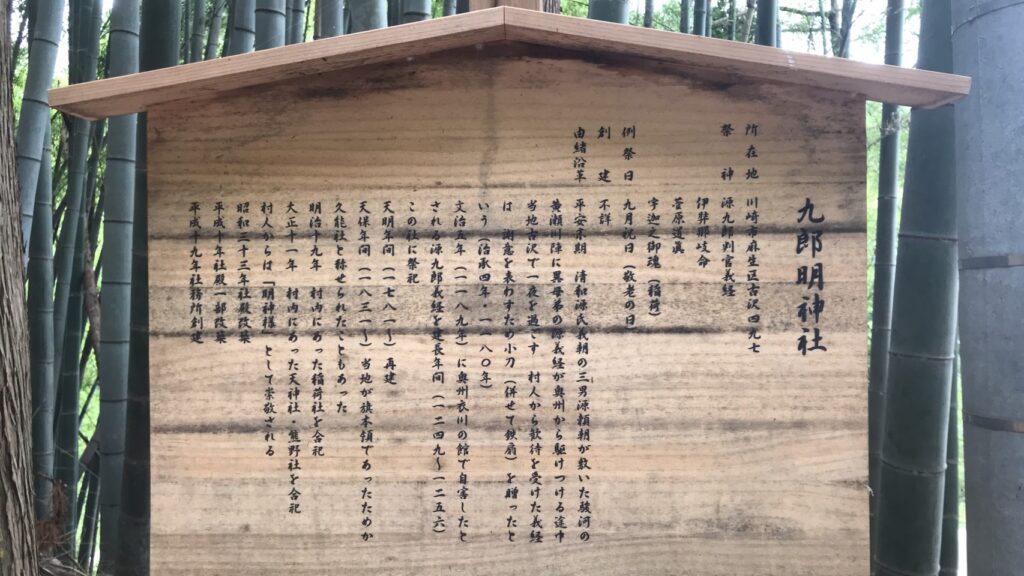 九郎明神社
所在地 川崎市麻生区古沢四九七
祭神 源九郎判官義経
伊弉那岐命
菅原道真
宇迦之御魂（稲荷）
例祭日 九月祝日（敬老の日）
創建 不詳
由緒沿革 平安末期 清和源氏義朝の三男源頼朝が敷いた駿河の
黄瀬川陣に異母弟の源義経が奥州から駆けつける途中
当地古沢で一夜を過ごす 村人から歓待を受けた義経
は 謝意を表わすため小刀（併せて鉄扇）を贈ったと
いう（治承四年・一一八〇年）
文治五年（一一八九年）に奥州衣川の館で自害したと
される源九郎義経を建長年間（一二四九〜一二五六）
この社に祭祀
天明年間（一七八一〜）再建
天保年間（一八三一〜）当地が旗本領であったためか
久能社と称せられたこともあった
明治十九年 村内にあった稲荷社を合祀
大正十一年 村内にあった天神社・熊野社を合祀
村人からは「明神様」として崇敬される
昭和二十三年社殿改築
平成十年社殿一部改築
平成十九年社務所創建